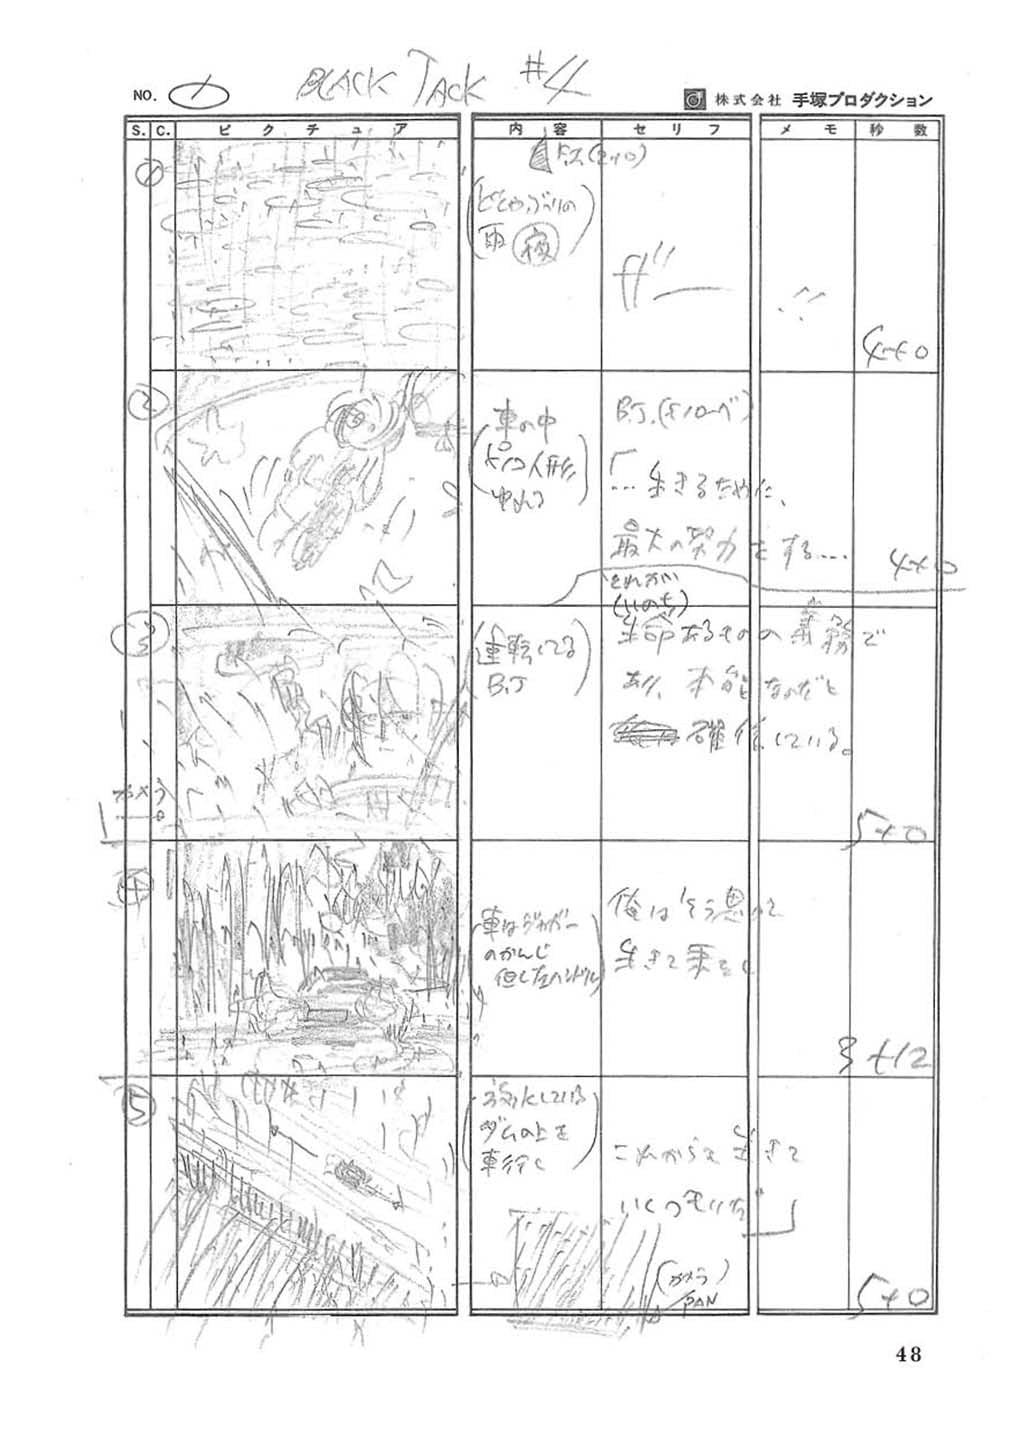 BLACK JACK #4
NO. 1
株式会社 手塚プロダクション
S. C. ピクチュア 内容 セリフ メモ 秒数
①
F.I.(2+0)
(どしゃぶりの
雨 夜)
4+0
②
車の中
(ピノコ人形
ゆれる)
B.J.(モノローグ)
「…生きるために、
最大の努力をする….
4+0
それが
(いのち)
③
(運転してる
B.J)
生命あるものの義務で
あり、本能なのだと
確信している。
カメラ
5+0
④
(車はジャガー
のかんじ
但し左ハンドル)
俺はそう思って
生きて来たし
3+12
⑤
(放水している
ダムの上を
車行く)
これからも生きて
いくつもりだ」
(カメラ)
PAN
5+0
48